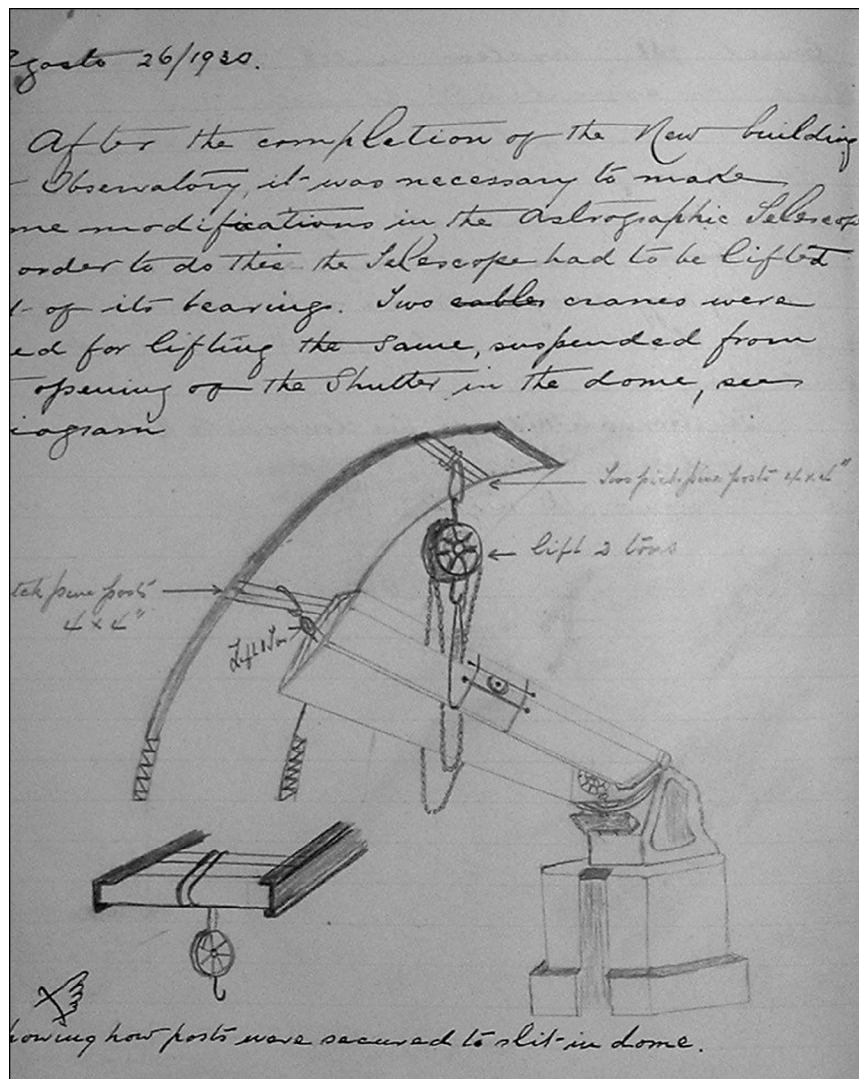 gosto 26/1930.
After the completion of the New building
Observatory, it was necessary to make
me modifications in the Astrographic Telescop
order to do this the Telescope had to be lifted
t of its bearings. Two cables cranes were
ed for lifting the same, suspended from
opening of the Shutter in the dome, see
iagram
Two pitch pine posts 4 x 4"
lift 2 tons
tch pine posts
4 x 4"
Lift 1 Ton
howing how posts were secured to slit in dome.